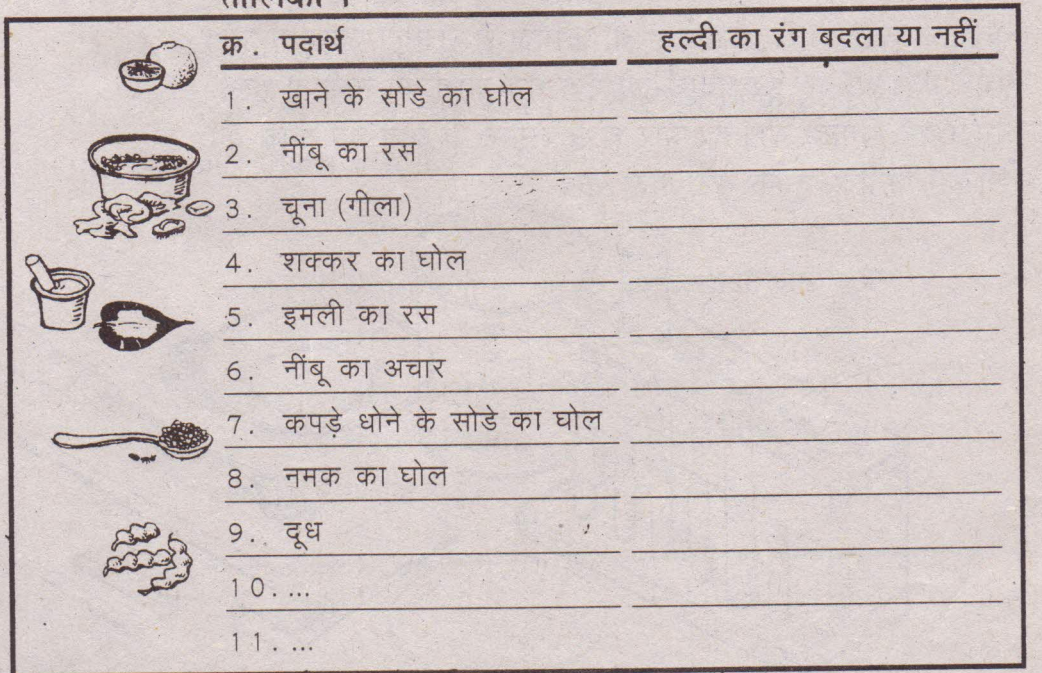 क्र. पदार्थ हल्दी का रंग बदला या नहीं
1. खाने के सोडे का घोल
2. नींबू का रस
3. चूना (गीला)
4. शक्कर का घोल
5. इमली का रस
6. नींबू का अचार
7. कपड़े धोने के सोडे का घोल
8. नमक का घोल
9. दूध
10. ...
11. ...